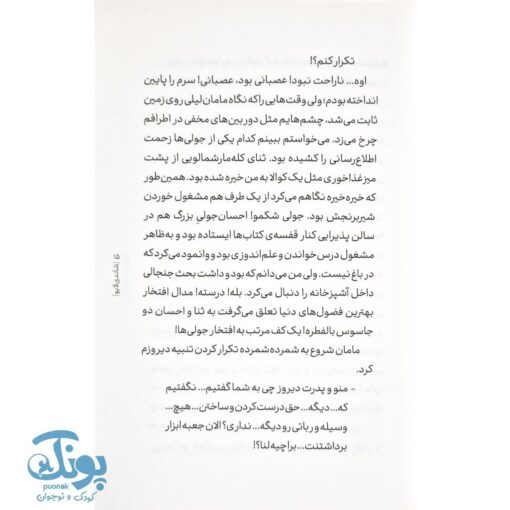 تکرار کنم؟!
اوه... ناراحت نبود! عصبانی بود، عصبانی! سرم را پایین
انداخته بودم؛ ولی وقت‌هایی را که نگاه مامان لیلی روی زمین
ثابت می‌شد، چشم‌هایم مثل دوربین‌های مخفی در اطرافم
چرخ می‌زد. می‌خواستم ببینم کدام یکی از جولی‌ها زحمت
اطلاع‌رسانی را کشیده بود. ثنای کله‌مارشمالویی از پشت
میز غذاخوری مثل یک کوالا به من خیره شده بود. همین‌طور
که خیره‌خیره نگاهم می‌کرد از یک طرف هم مشغول خوردن
شیربرنجش بود. جولی شکمو! احسان جولیِ بزرگ هم در
سالن پذیرایی کنار قفسه‌ی کتاب‌ها ایستاده بود و به‌ظاهر
مشغول درس خواندن و علم‌اندوزی بود و وانمود می‌کرد که
در باغ نیست، ولی من می‌دانم که بود و داشت بحث جنجالی
داخل آشپزخانه را دنبال می‌کرد. بله! درسته! مدال افتخار
بهترین فضول‌های دنیا تعلق می‌گرفت به ثنا و احسان دو
جاسوس بالفطره! یک کف مرتب به افتخار جولی‌ها!
مامان شروع به شمرده‌شمرده تکرار کردن تنبیه دیروزم
کرد.
- منو و پدرت دیروز چی به شما گفتیم... نگفتیم
که... دیگه... حق درست کردن و ساختن... هیچ...
وسیله و رباتی رو دیگه... نداری؟ الان جعبه ابزار
برداشتنت... برا چیه لنا؟!
پونک
puonak
کودک و نوجوان